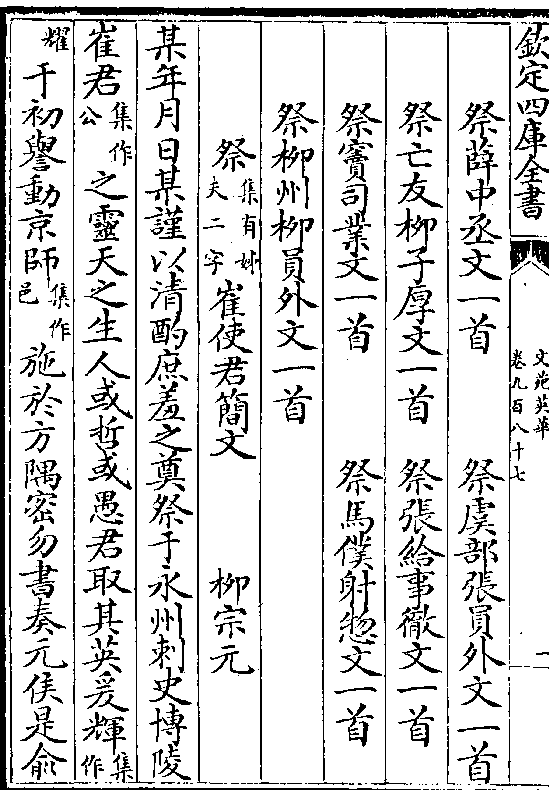 欽定四庫全書
文苑英華
卷九百八十七
一
祭薛中丞文一首 祭虞部張員外文一首
祭亡友柳子厚文一首 祭張給事徹文一首
祭竇司業文一首 祭馬僕射揔文一首
祭柳州柳員外文一首
祭集有妙夫二字崔使君簡文 柳宗元
某年月日某謹以清酌庶羞之奠祭于永州刺史博陵
崔君集作公之靈天之生人或哲或愚君取其英爰輝集作
耀于初譽動京師集作邑施於方隅密勿書奏元侯是俞